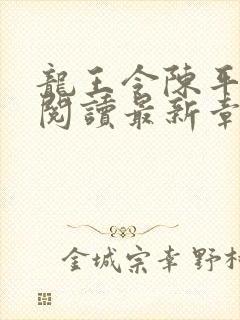 龍王令陳平
閱讀最新章
金城宗幸野村